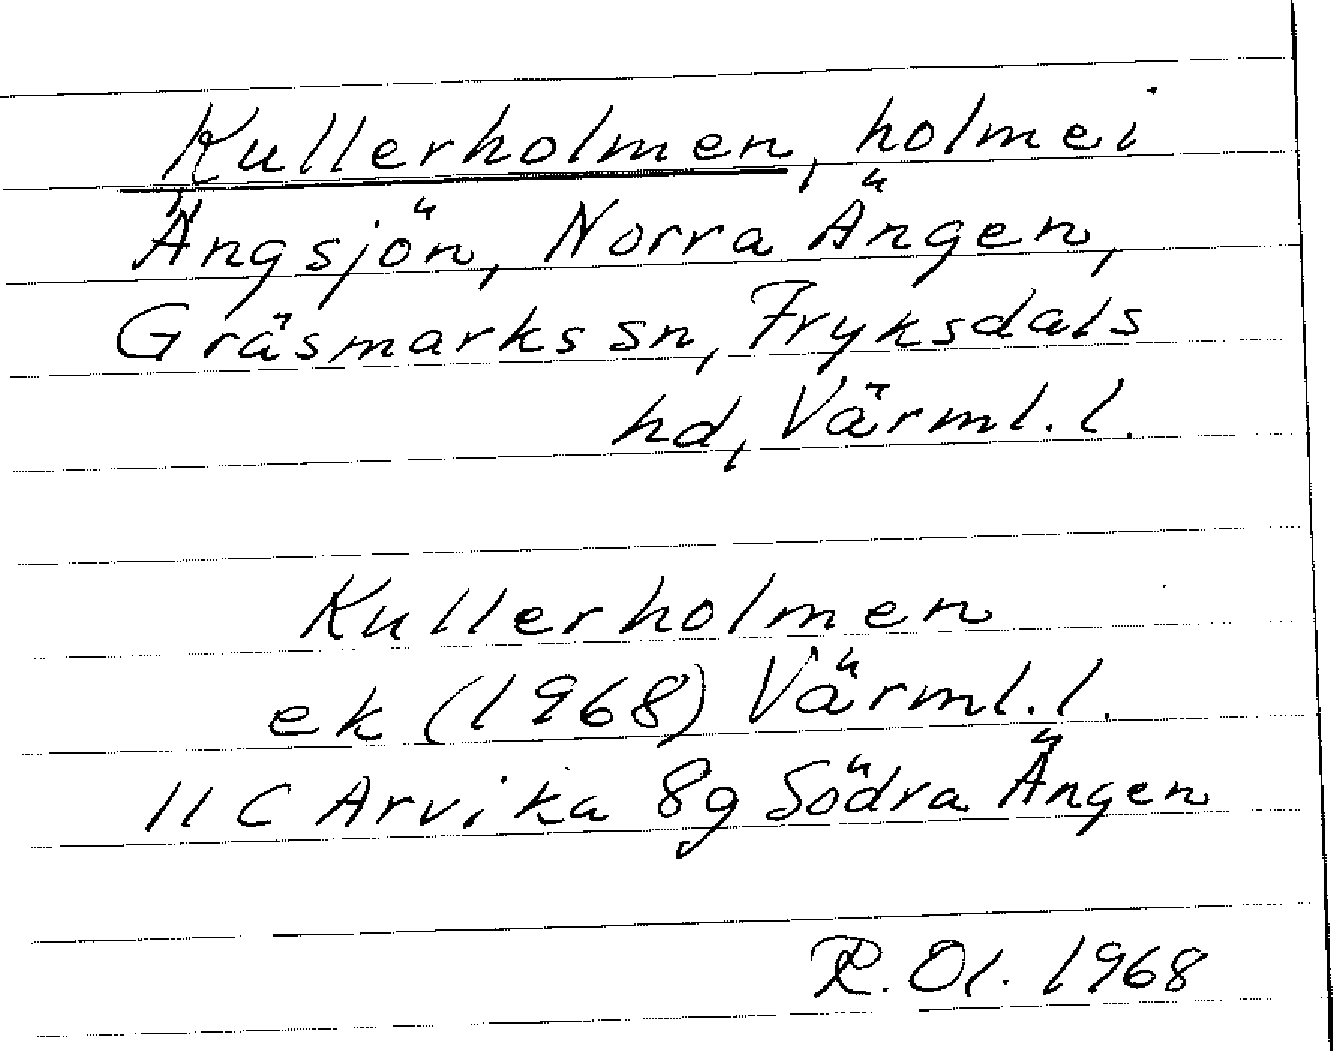 Kullerholmen, holme i
Ängsjön, Norra Ängen,
Gräsmarks sn, Fryksdals
hd, Värml. l.
Kullerholmen
ek (1968) Värml. l.
11 C Arvika 8g Södra Ängen
R. Ol. 1968